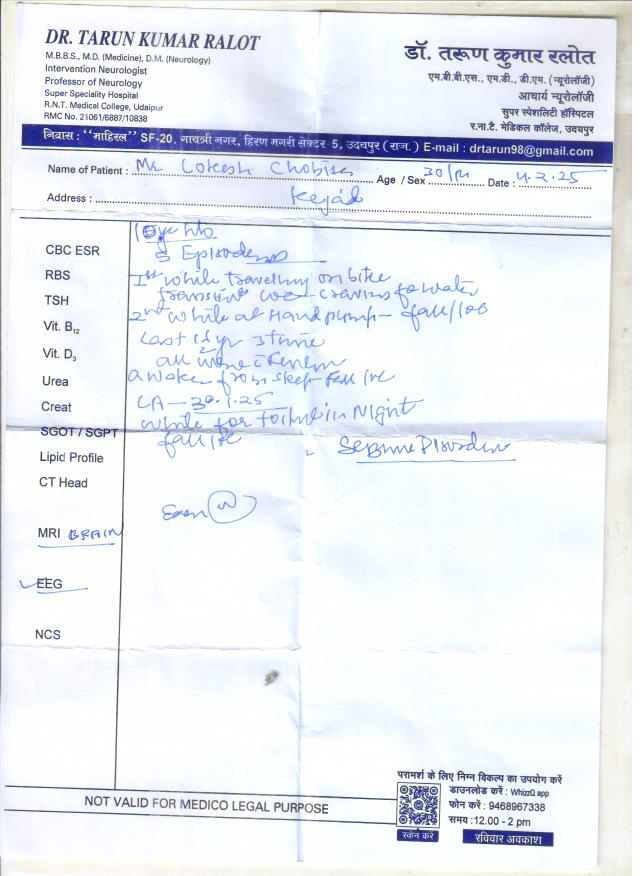 DR. TARUN KUMAR RALOT
M.B.B.S., M.D. (Medicine), D.M. (Neurology)
Intervention Neurologist
Professor of Neurology
Super Speciality Hospital
R.N.T. Medical College, Udaipur
RMC No. 21061/6887/10838
डॉ. तरूण कुमार रलोत
एम.बी.बी.एस., एम.डी., डी.एम. (न्यूरोलॉजी)
आचार्य न्यूरोलॉजी
सुपर स्पेशलिटी हॉस्पिटल
र.ना.टै. मेडिकल कॉलेज, उदयपुर
निवास : "माहिरल" SF-20, गायत्री नगर, हिरण मगरी सेक्टर 5, उदयपुर (राज.) E-mail : drtarun98@gmail.com
Name of Patient : Mr Lokesh Chobisa Age / Sex 30/M Date : 4.2.25
Address :
CBC ESR
RBS
TSH
Vit. B12
Vit. D3
Urea
Creat
SGOT / SGPT
Lipid Profile
CT Head
MRI BRAIN
EEG
NCS
Episodes
1st while travelling on bike
transient craving for water
2nd while at Hand pump - fall/LOC
Last 1 yr 3 time
30.1.25
in Night
Seizure Disorder
NOT VALID FOR MEDICO LEGAL PURPOSE
परामर्श के लिए निम्न विकल्प का उपयोग करें
डाउनलोड करें : WhizzQ app
फोन करें : 9468967338
समय : 12.00 - 2 pm
स्कैन करें
रविवार अवकाश